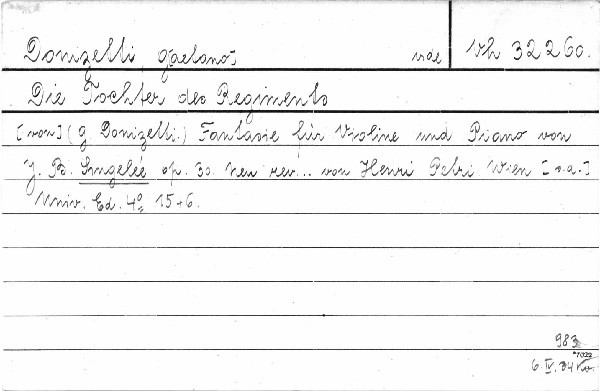 Donizetti, Gaetano
Vh 32260.
Die Tochter des Regiments
[von] (G. Donizetti.) Fantasie für Violine und Piano von
J. B. Singelée op. 30. Neu rev... von Henri Petri Wien [s.a.]
Univ. Ed. 4° 15+6.
983
6.IV.34